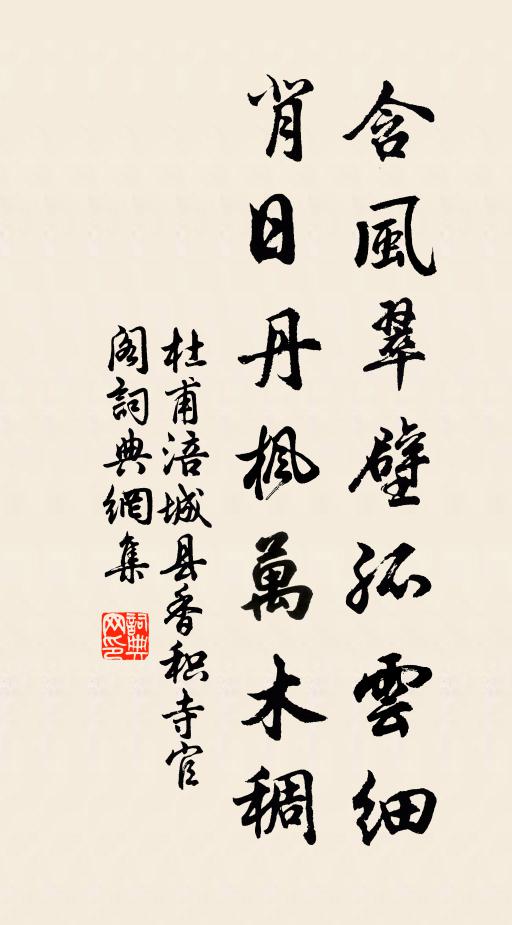 含風翠壁孤雲細
背日丹楓萬木稠
杜甫涪城县香积寺官
阁詞典網集
詞典网印